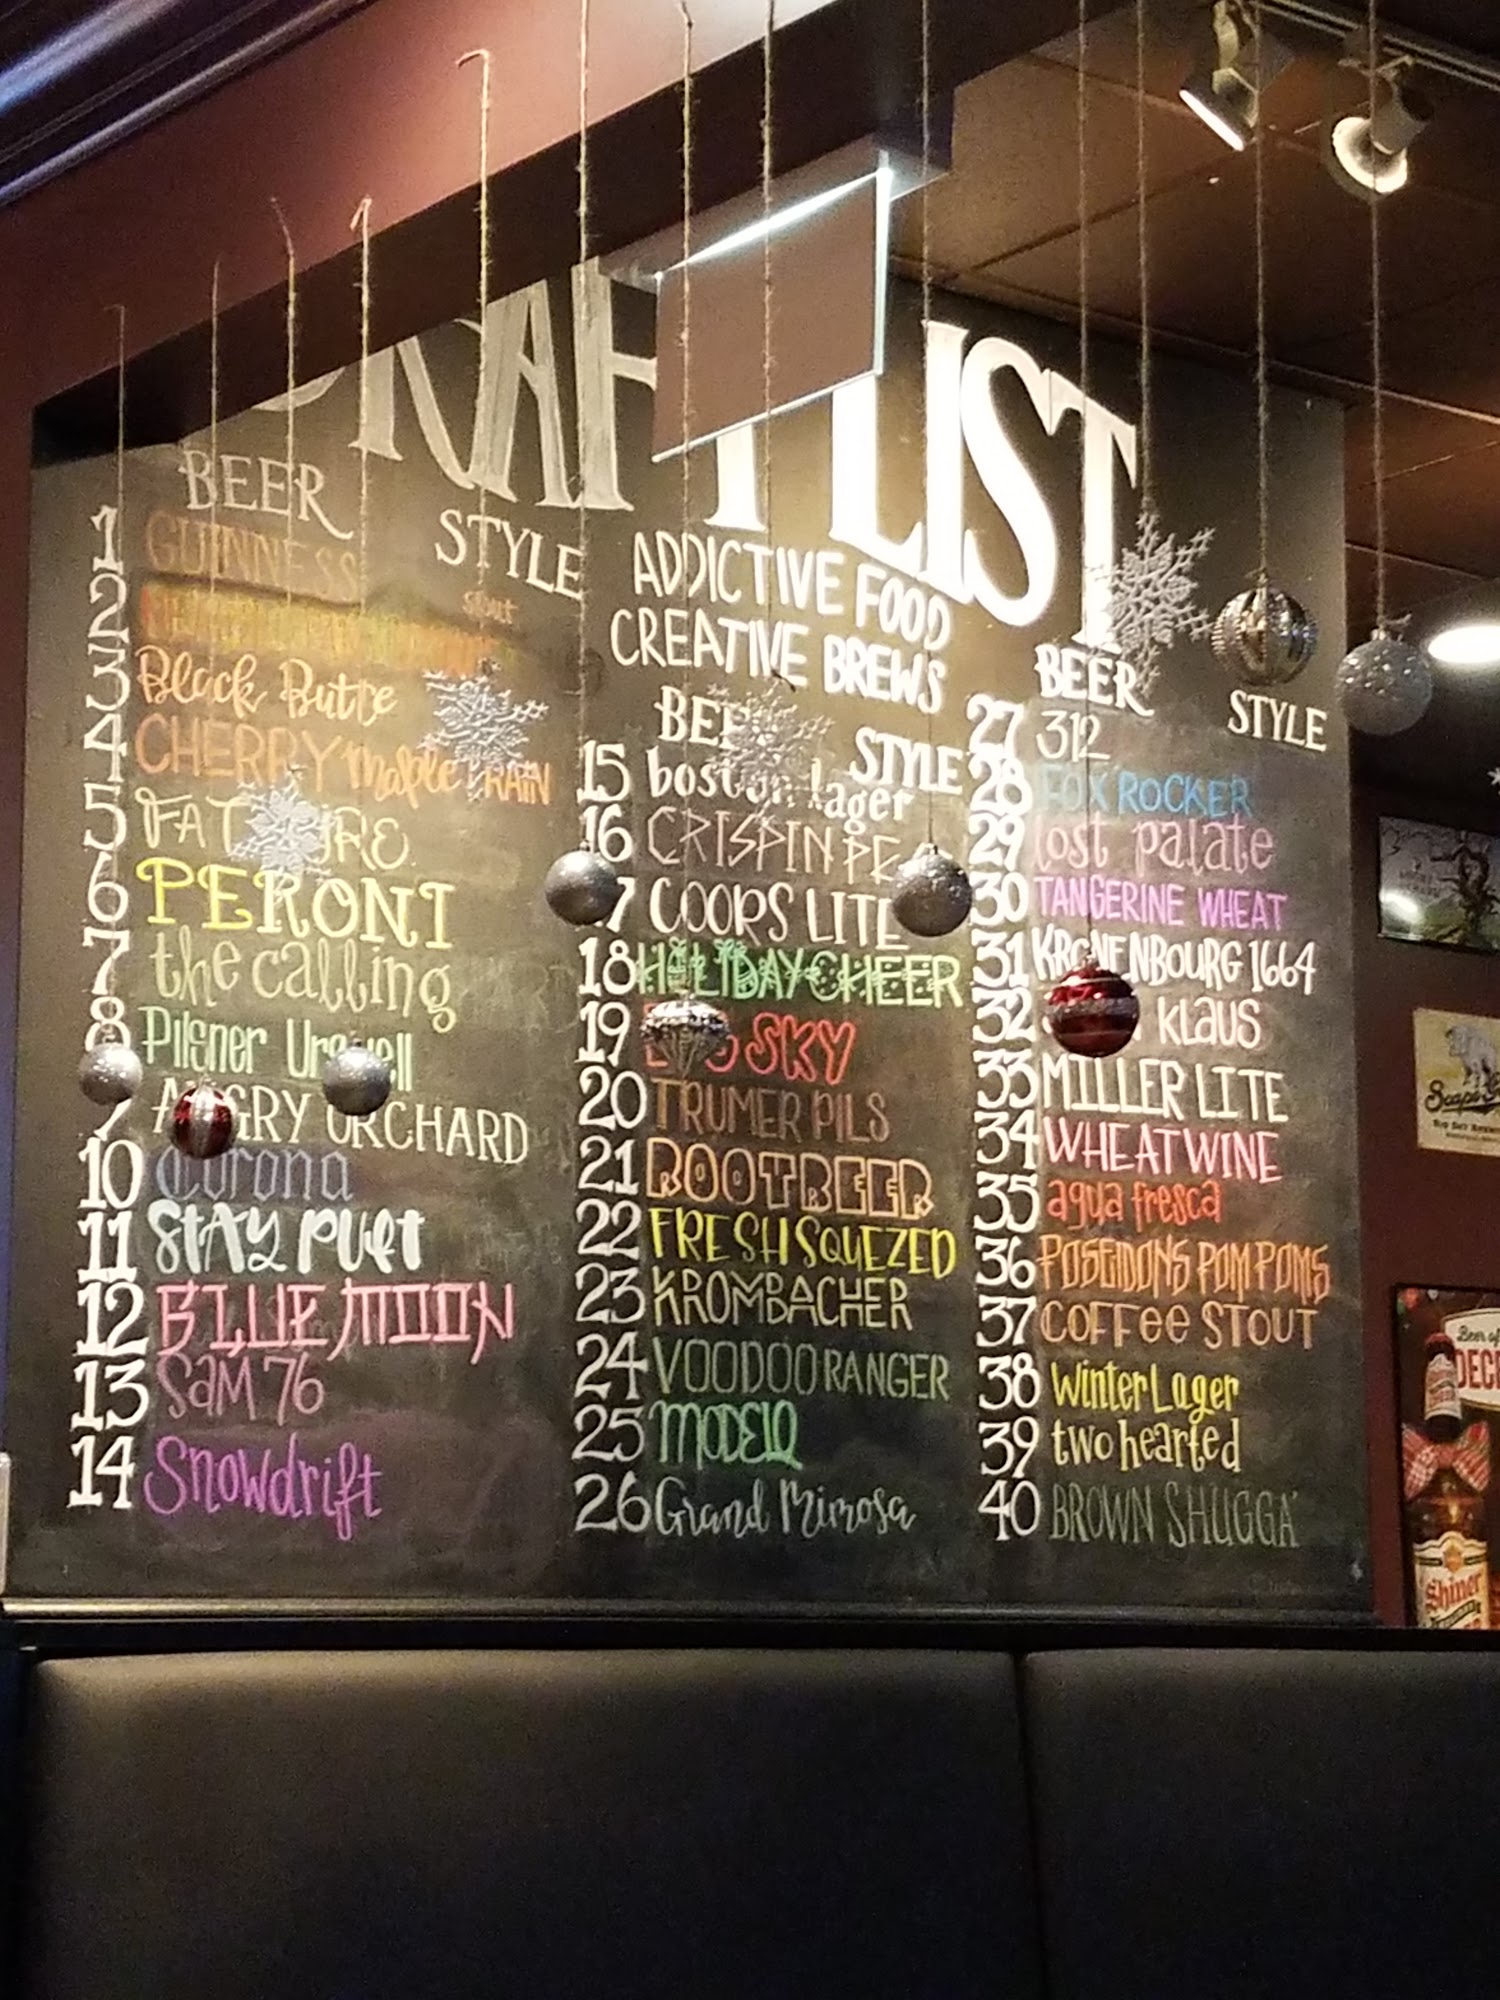 LIST
BEER
STYLE
1 GUINNESS
stout
2
3 Black Butte
4 CHERRY maple
5 FAT
6 PERONI
7 the calling
8 Pilsner
9 ANGRY ORCHARD
10 Corona
11 STAY PUFT
12 BLUE MOON
13 SAM 76
14 Snowdrift
ADDICTIVE FOOD
CREATIVE BREWS
STYLE
15 boston lager
16 CRISPIN
17 COORS LITE
18 HOLIDAY CHEER
19 SKY
20 TRUMER PILS
21 ROOTBEER
22 FRESH SQUEZED
23 KROMBACHER
24 VOODOO RANGER
25 MODELO
26 Grand Mimosa
BEER
STYLE
27 312
28 FOX ROCKER
29 lost palate
30 TANGERINE WHEAT
31 KRONENBOURG 1664
32 KLAUS
33 MILLER LITE
34 WHEATWINE
35 agua fresca
36 POSEIDONS POM POMS
37 COFFEE STOUT
38 Winter Lager
39 two hearted
40 BROWN SHUGGA'
Beer of
DEC
Shiner